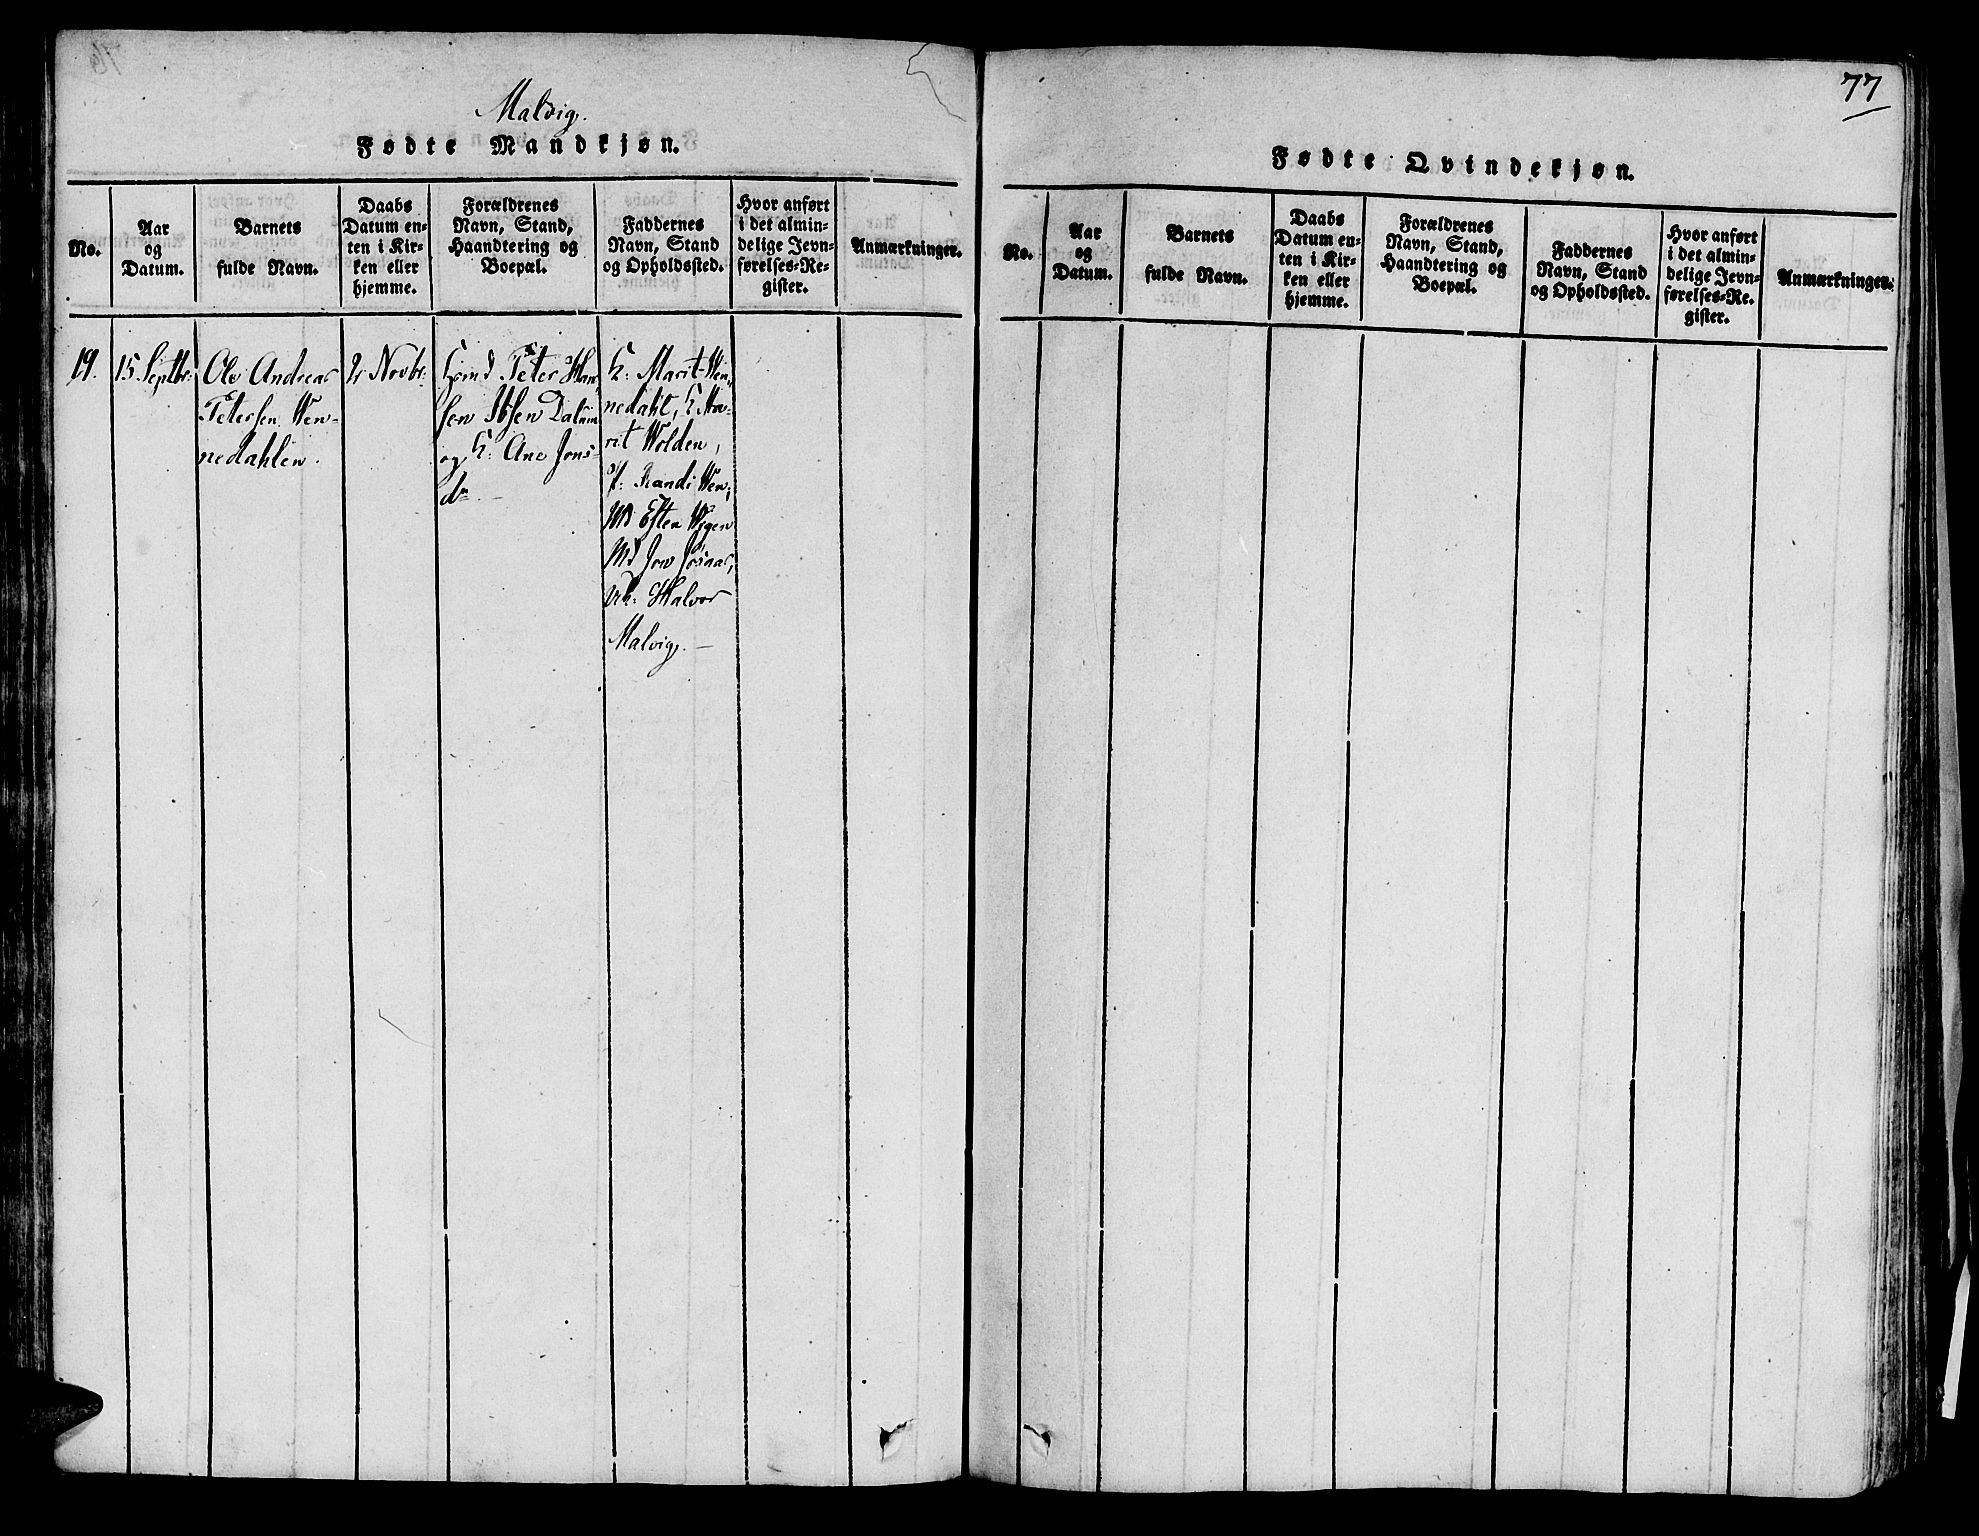 Malvig.
Fødte Mandkjøn.
No.
Aar
og
Datum.
Barnets
fulde Navn.
Daabs
Datum en-
ten i Kir-
ken eller
hjemme.
Forældrenes
Navn, Stand,
Haandtering og
Boepæl.
Faddernes
Navn, Stand
og Opholdssted.
Hvor anført
i det almin-
delige Jevn-
førelses-Re-
gister.
Anmærkninger.
19.
15 Septbr:
Ole Andreas
Petersen Wen-
nedahlen.
2 Novbr:
Peter Han
sen
og K: Ane Jons-
K: Marit Wen-
nedahl, K Ma-
rit Wolden,
P: Randi Wen,
Md Esten
Md Jon
Halvor
Malvig. —
77
Fødte Qvindekjøn.
No.
Aar
og
Datum.
Barnets
fulde Navn.
Daabs
Datum en-
ten i Kir-
ken eller
hjemme.
Forældrenes
Navn, Stand,
Haandtering og
Boepæl.
Faddernes
Navn, Stand
og Opholdssted.
Hvor anført
i det almin-
delige Jevn-
førelses-Re-
gister.
Anmærkninger.